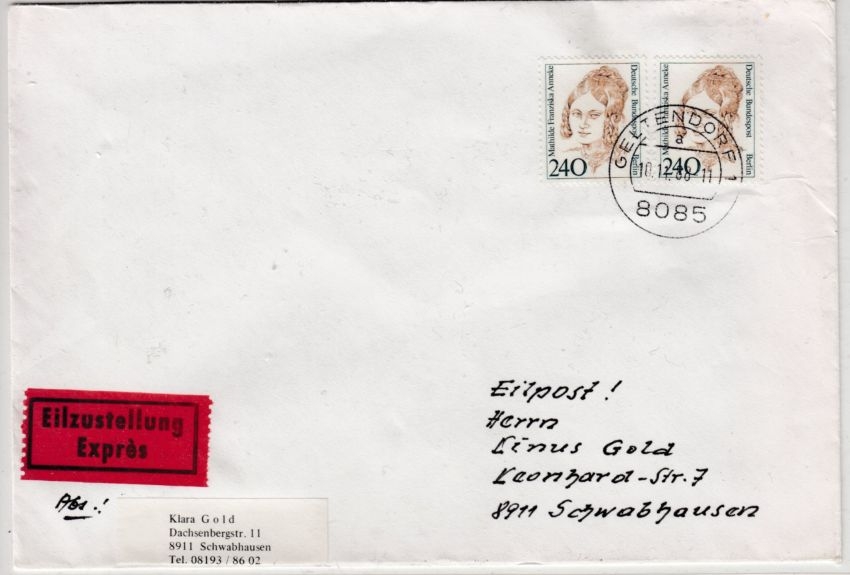 Mathilde Franziska Anneke
Deutsche Bundespost Berlin
240
Mathilde Franziska Anneke
Deutsche Bundespost Berlin
240
GELTENDORF 1
a
-11
8085
Eilzustellung
Exprès
Eilpost!
Herrn
Linus Gold
Leonhard-Str. 7
8911 Schwabhausen
Abs.:
Klara Gold
Dachsenbergstr. 11
8911 Schwabhausen
Tel. 08193 / 86 02